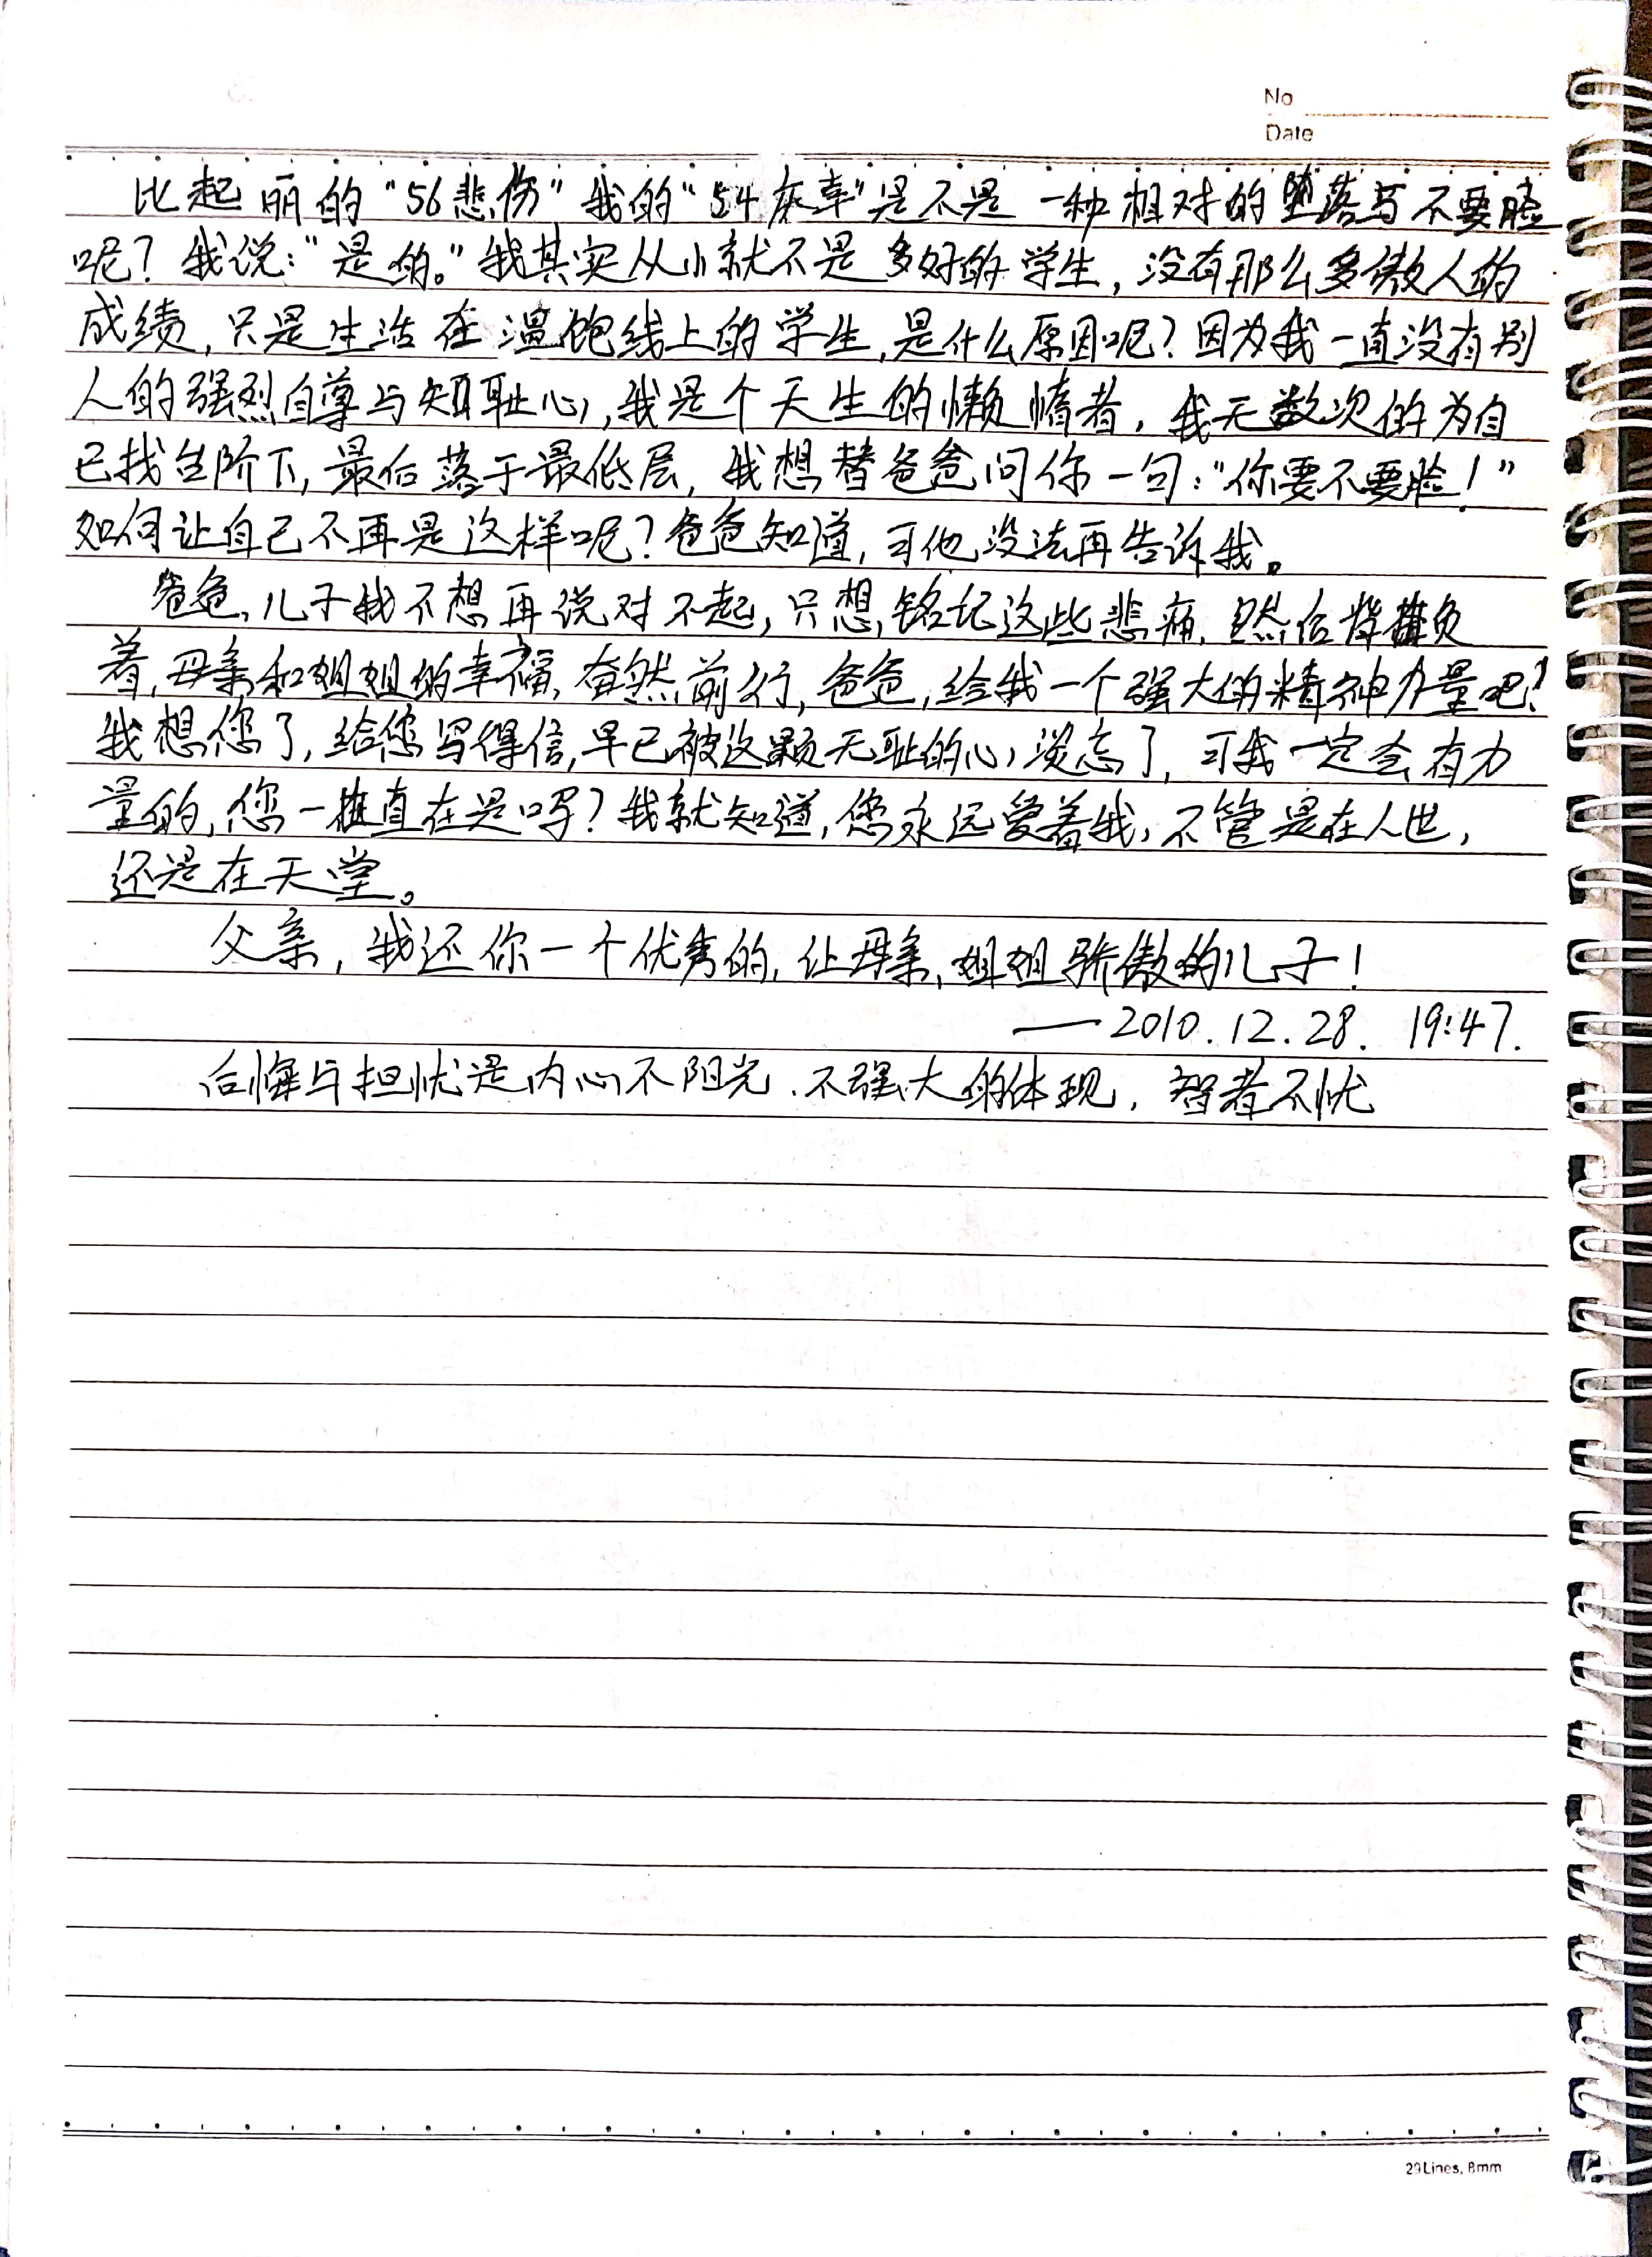 No
Date
比起丽的“56悲伤”我的“54庆幸”是不是一种相对的堕落与不要脸
呢？我说：“是的。”我其实从小就不是多好的学生，没有那么多傲人的
成绩，只是生活在温饱线上的学生，是什么原因呢？因为我一直没有别
人的强烈自尊与知耻心，我是个天生的懒惰者，我无数次的为自
己找台阶下，最后落于最低层，我想替爸爸问你一句：“你要不要脸！”
如何让自己不再是这样呢？爸爸知道，可他没法再告诉我。
爸爸，儿子我不想再说对不起，只想，铭记这些悲痛，然后背负
着，母亲和姐姐的幸福，奋然前行，爸爸，给我一个强大的精神力量吧！
我想您了，给您写得信，早已被这颗无耻的心淡忘了，可我一定会有力
量的，您一直在是吗？我就知道，您永远爱着我，不管是在人世，
还是在天堂。
父亲，我还你一个优秀的，让母亲，姐姐骄傲的儿子！
——2010.12.28. 19:47.
后悔与担忧是内心不阳光、不强大的体现，智者不忧
29Lines, 8mm